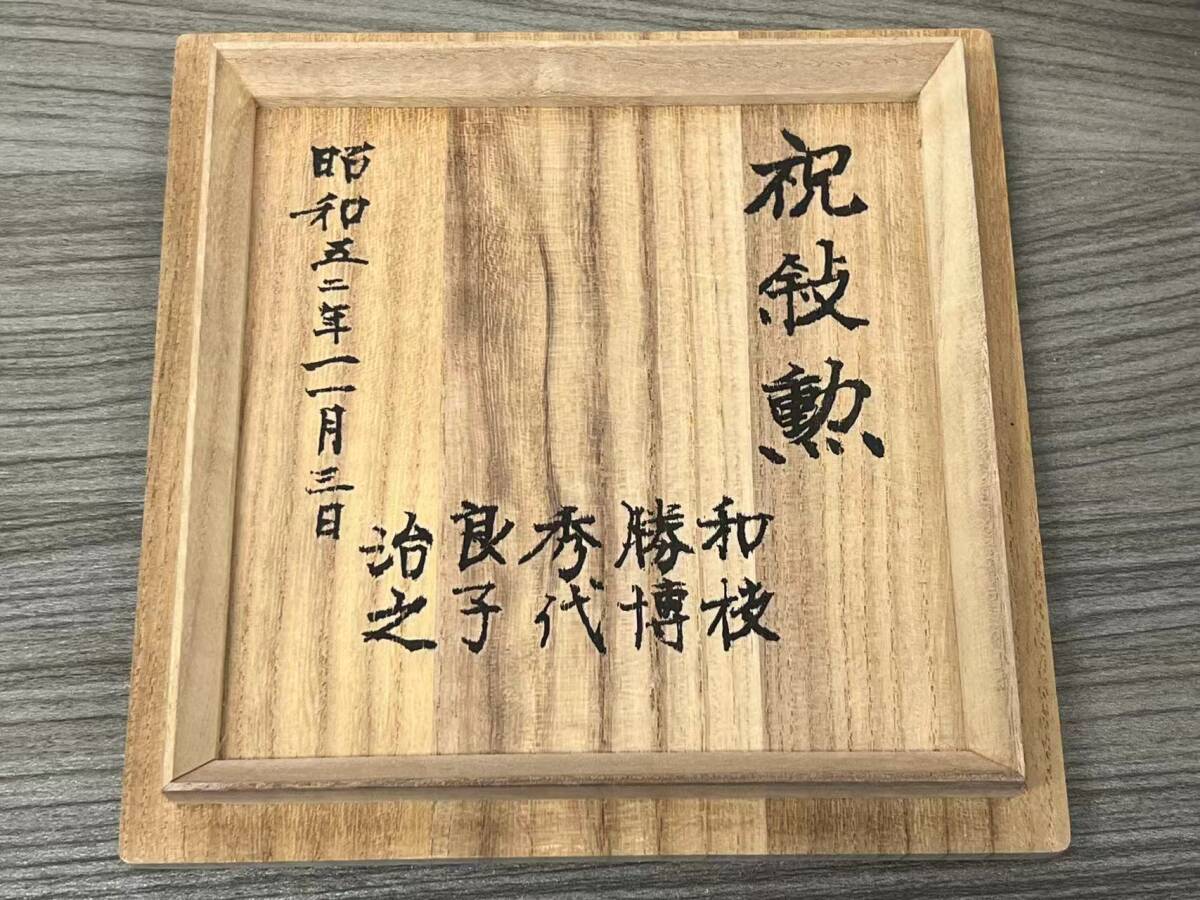 祝敍勲
和枝
勝博
秀代
良子
治之
昭和五二年一一月三日